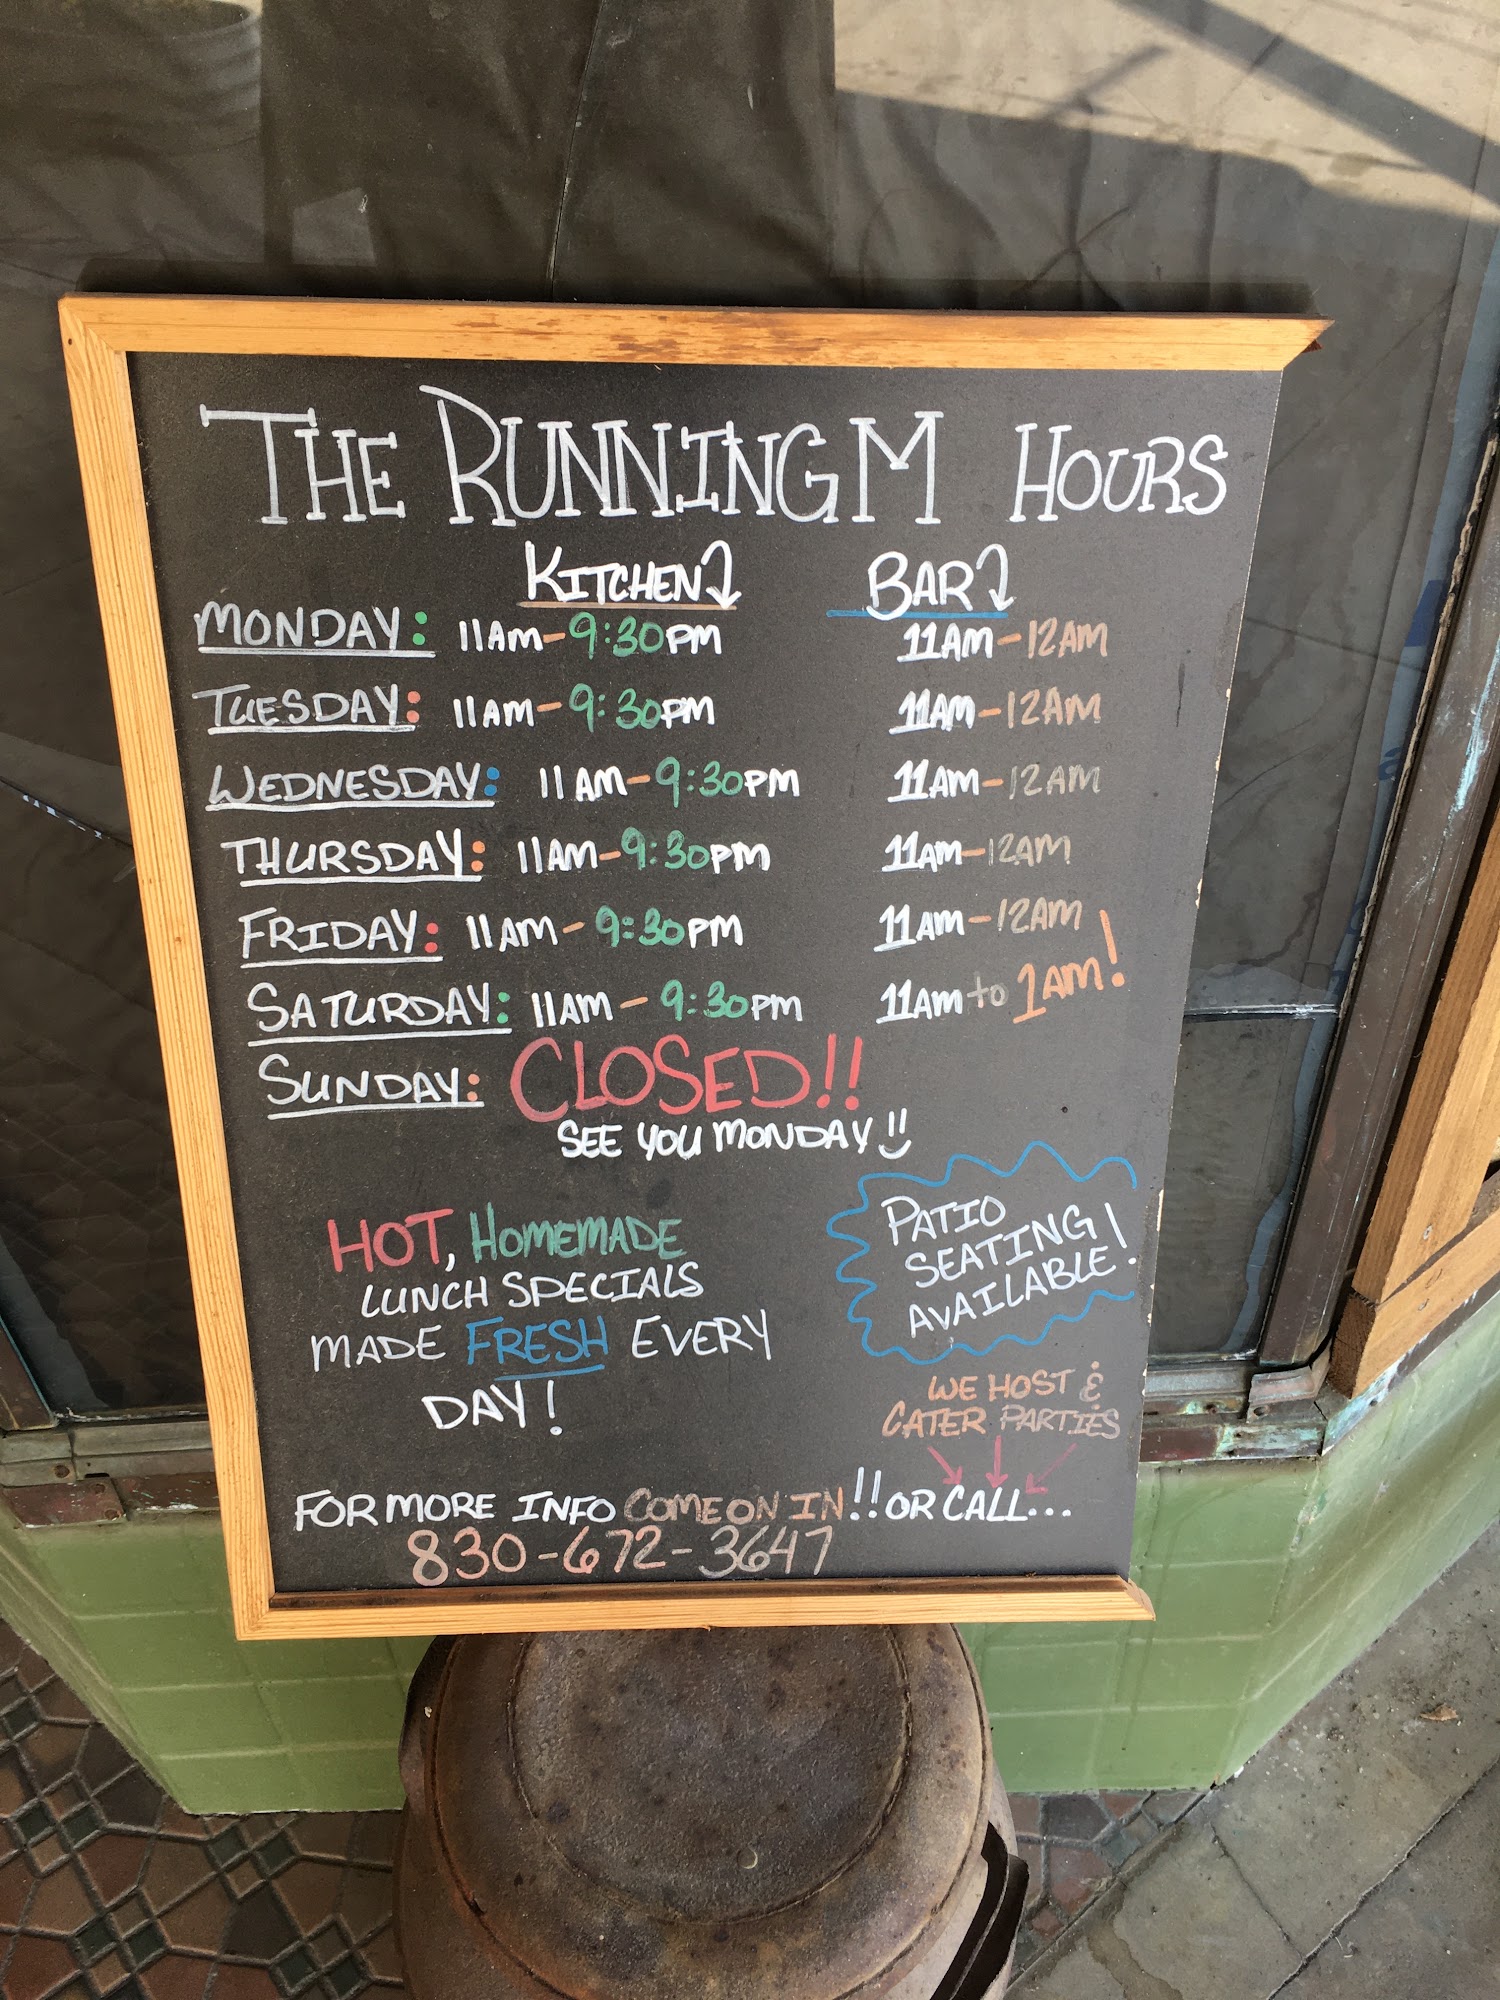 THE RUNNING M HOURS
KITCHEN BAR
MONDAY: 11AM-9:30PM 11AM-12AM
TUESDAY: 11AM-9:30PM 11AM-12AM
WEDNESDAY: 11AM-9:30PM 11AM-12AM
THURSDAY: 11AM-9:30PM 11AM-12AM
FRIDAY: 11AM-9:30PM 11AM-12AM
SATURDAY: 11AM-9:30PM 11AM to 1AM!
SUNDAY: CLOSED!!
SEE YOU MONDAY!!
HOT, HOMEMADE
LUNCH SPECIALS
MADE FRESH EVERY
DAY!
PATIO
SEATING
AVAILABLE!
WE HOST &
CATER PARTIES
FOR MORE INFO COME ON IN!! OR CALL...
830-672-3647